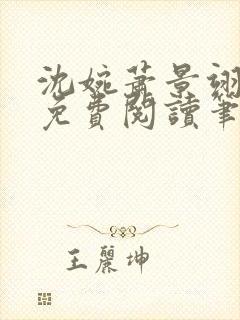 沈婉蕭景翊
免費閱讀筆
王麗坤